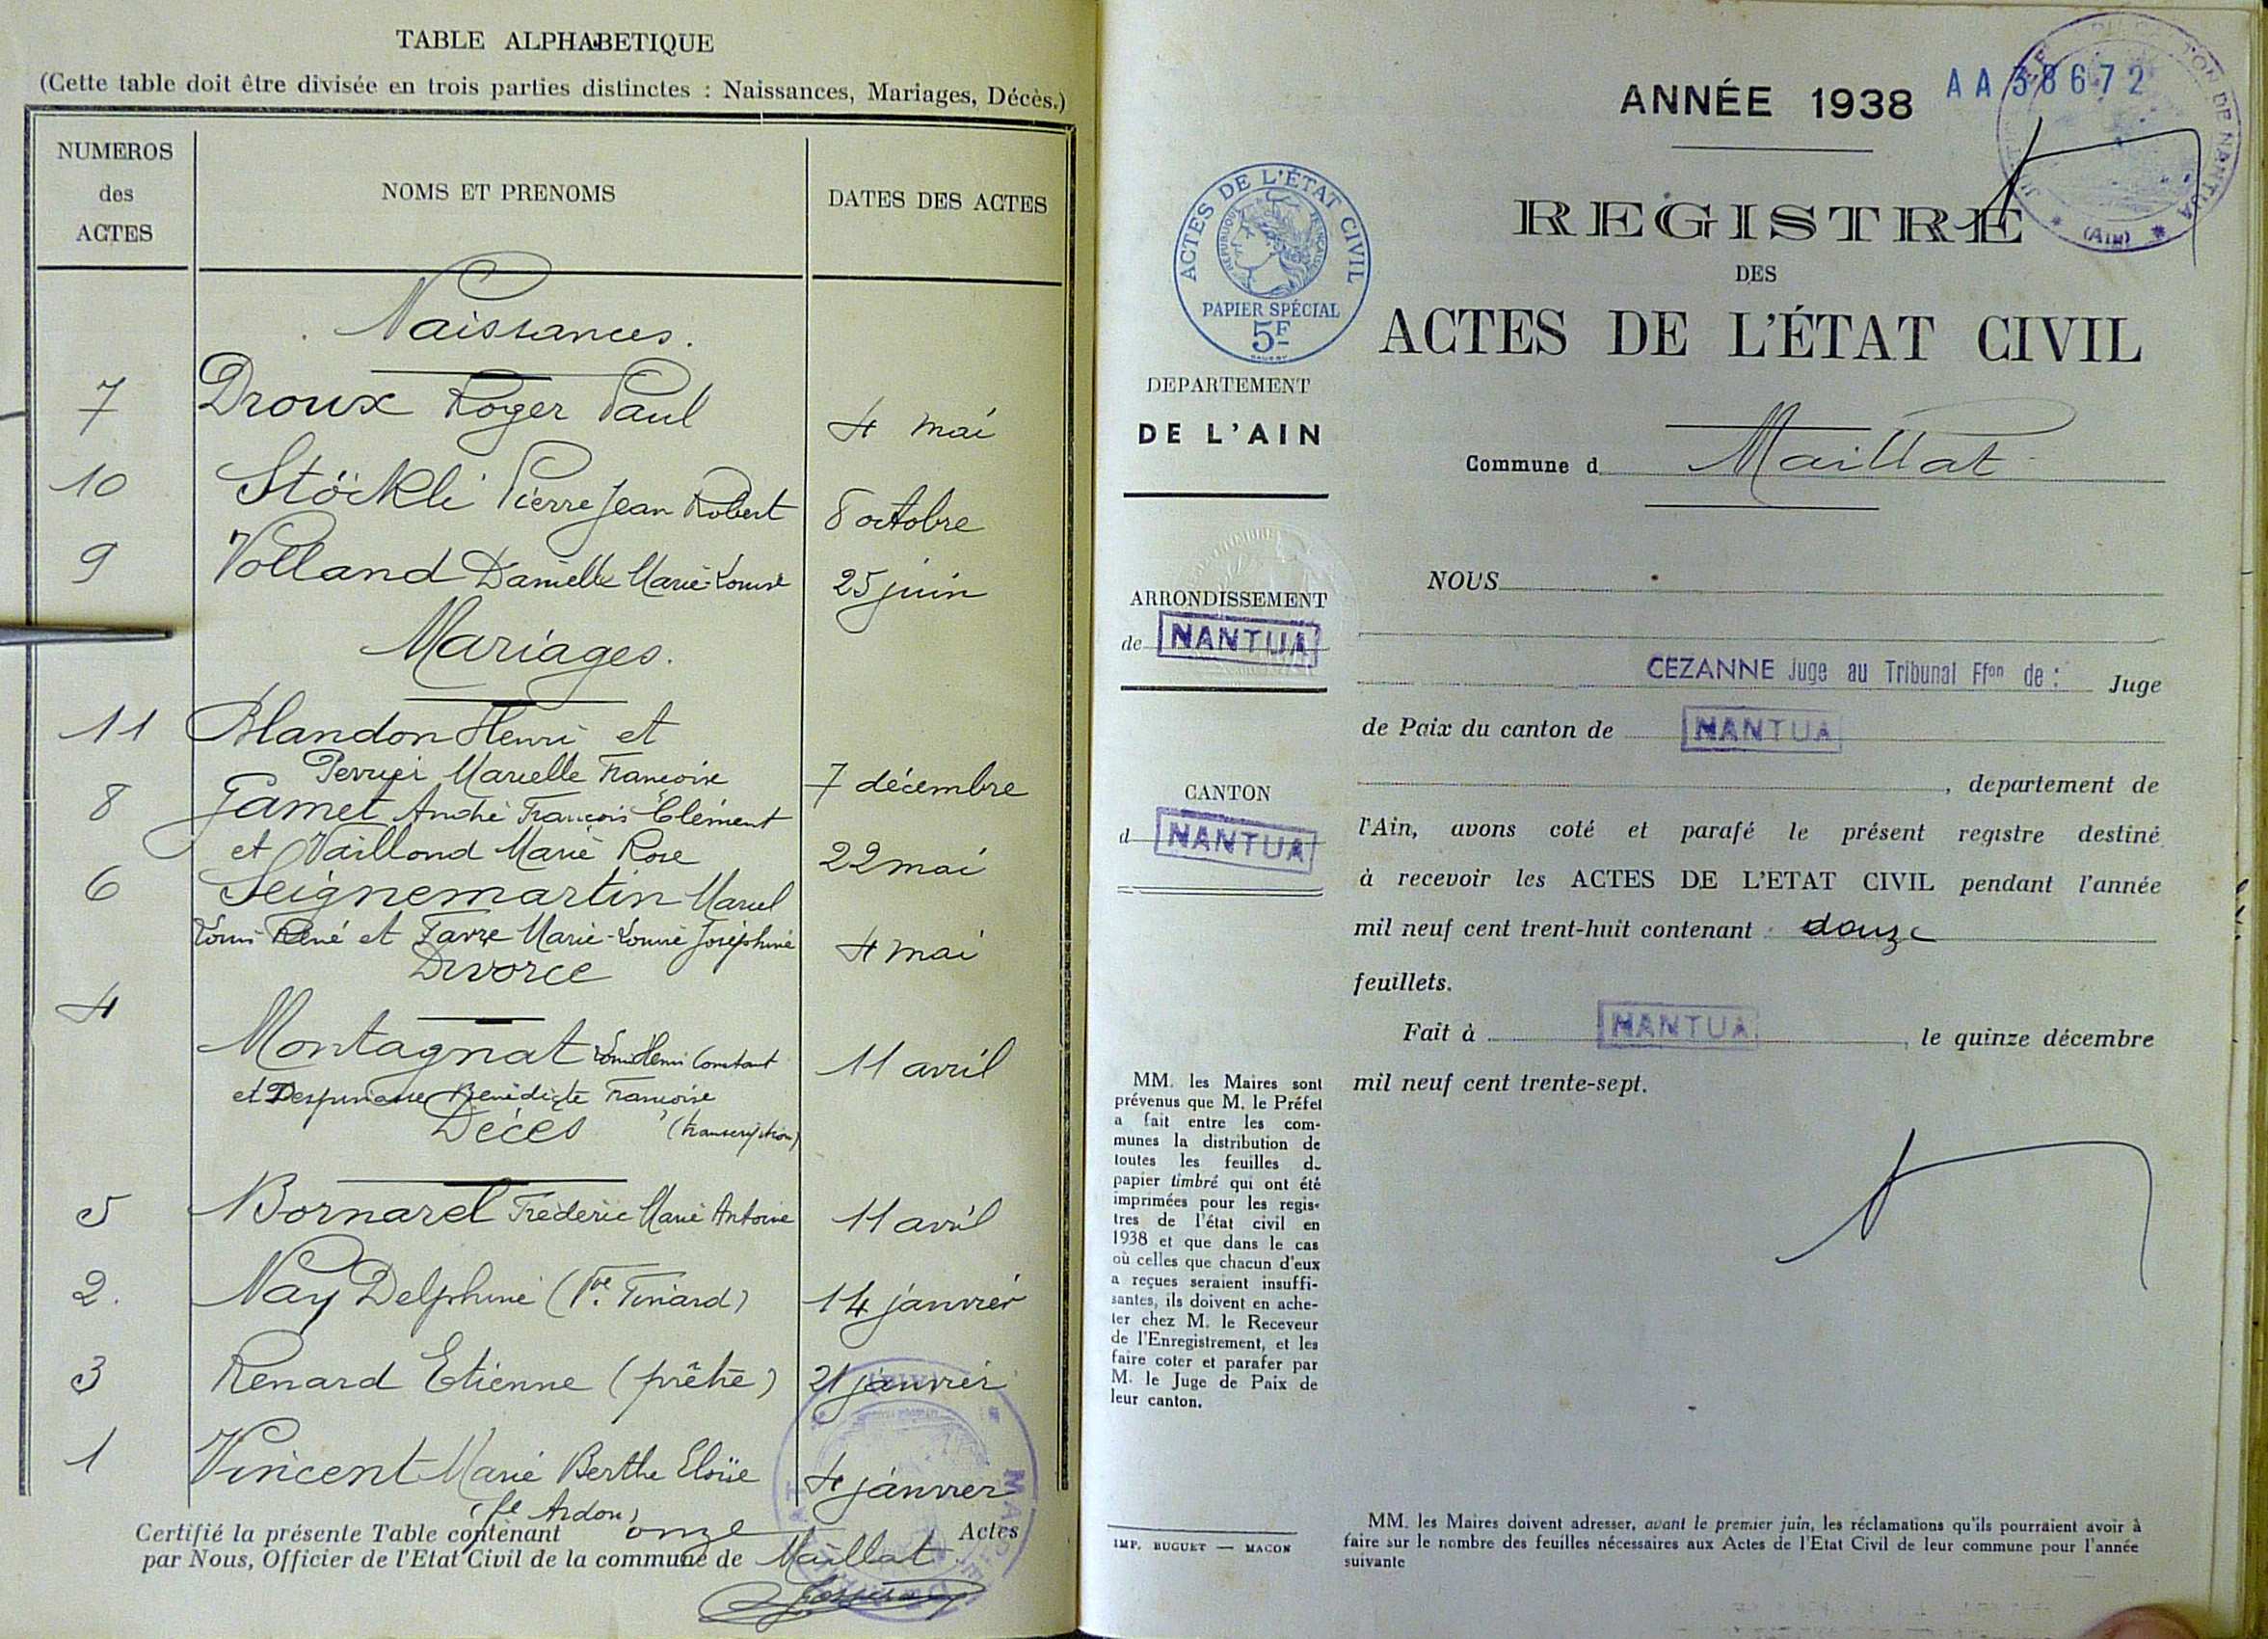 TABLE ALPHABETIQUE
(Cette table doit être divisée en trois parties distinctes : Naissances, Mariages, Décès.)
NUMEROS des ACTES
NOMS ET PRENOMS
DATES DES ACTES
Naissances.
7 Droux Roger Paul 4 mai
10 Stöckli Pierre Jean Robert 8 octobre
9 Volland Danielle Marie-Louise 25 juin
Mariages.
11 Blandon Henri et
Perrier Marcelle Françoise 7 décembre
8 Gamet André François Clément
et Vaillond Marie Rose 22 mai
6 Seignemartin Marcel
Louis René et Favre Marie-Louise Joséphine 4 mai
Divorce
4 Montagnat Louis Henri Constant 11 avril
et Bénédicte Françoise
(transcription)
Décès
5 Bornarel Frédéric Marie Antoine 11 avril
2. Nay Delphine (Vve Tinard) 14 janvier
3 Renard Etienne (prêtre) 21 janvier
1 Vincent Marie Berthe Eloïse 4 janvier
(fe Ardon)
Certifié la présente Table contenant onze Actes
par Nous, Officier de l'Etat Civil de la commune de Maillat
ANNÉE 1938
AA38672
REGISTRE
DES
ACTES DE L'ÉTAT CIVIL
ACTES DE L'ÉTAT CIVIL
REPUBLIQUE FRANÇAISE
PAPIER SPÉCIAL
5F
(Ain)
DEPARTEMENT
DE L'AIN
Commune d Maillat
ARRONDISSEMENT
de NANTUA
CANTON
d NANTUA
NOUS
CEZANNE Juge au Tribunal Ffon de : Juge
de Paix du canton de NANTUA
, departement de
l'Ain, avons coté et parafé le présent registre destiné
à recevoir les ACTES DE L'ETAT CIVIL pendant l'année
mil neuf cent trent-huit contenant douze
feuillets.
Fait à NANTUA, le quinze décembre
mil neuf cent trente-sept.
MM. les Maires sont
prévenus que M. le Préfet
a fait entre les com-
munes la distribution de
toutes les feuilles de
papier timbré qui ont été
imprimées pour les regis-
tres de l'état civil en
1938 et que dans le cas
où celles que chacun d'eux
a reçues seraient insuffi-
santes, ils doivent en ache-
ter chez M. le Receveur
de l'Enregistrement, et les
faire coter et parafer par
M. le Juge de Paix de
leur canton.
IMP. BUGUET — MACON
MM. les Maires doivent adresser, avant le premier juin, les réclamations qu'ils pourraient avoir à
faire sur le nombre des feuilles nécessaires aux Actes de l'Etat Civil de leur commune pour l'année
suivante